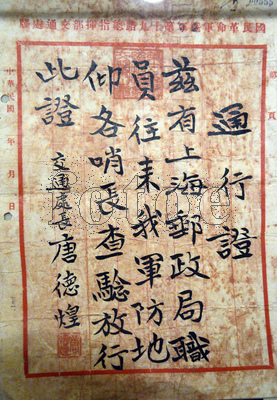 國民革命軍第十九路總指揮部交通處牋
通行證
茲有上海郵政局職
員往来我軍防地
仰各哨長查驗放行
此證
交通處長唐德煌
中華民國 年 月 日